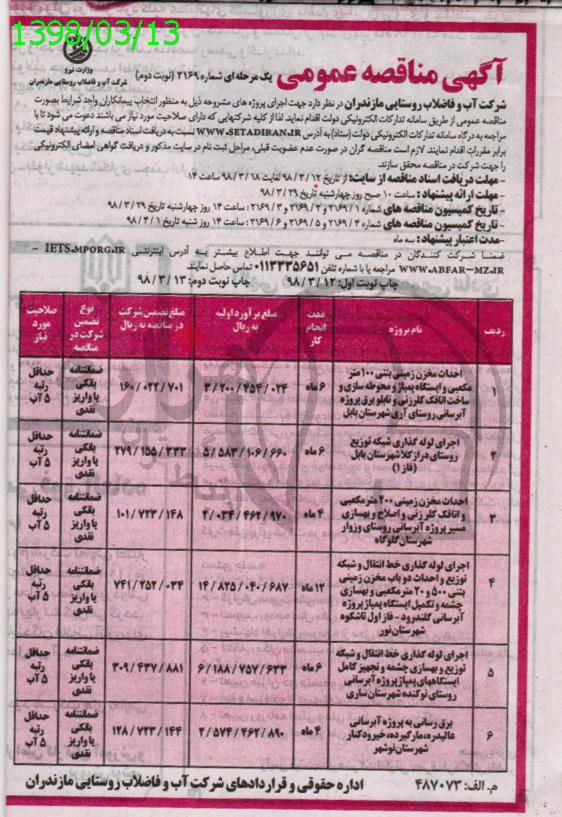 1398/03/13
آگهی مناقصه عمومی یک مرحله ای شماره ۲۱۶۹ (نوبت دوم)
وزارت نیرو
شرکت آب و فاضلاب روستایی مازندران
شرکت آب و فاضلاب روستایی مازندران در نظر دارد جهت اجرای پروژه های مشروحه ذیل به منظور انتخاب پیمانکاران واجد شرایط بصورت
مناقصه عمومی از طریق سامانه تدارکات الکترونیکی دولت اقدام نماید. لذا از کلیه شرکتهایی که دارای صلاحیت مورد نیاز می باشند دعوت می شود تا با
مراجعه به درگاه سامانه تدارکات الکترونیکی دولت (ستاد) به آدرس WWW.SETADIRAN.IR نسبت به دریافت اسناد مناقصه و ارائه پیشنهاد قیمت
برابر مقررات اقدام نمایند. لازم است مناقصه گران در صورت عدم عضویت قبلی، مراحل ثبت نام در سایت مذکور و دریافت گواهی امضای الکترونیکی
را جهت شرکت در مناقصه محقق سازند.
- مهلت دریافت اسناد مناقصه از سایت: از تاریخ ۹۸/۳/۱۲ لغایت ۹۸/۳/۱۸ ساعت ۱۴
- مهلت ارائه پیشنهاد: ساعت ۱۰ صبح روز چهارشنبه تاریخ ۹۸/۳/۲۹
- تاریخ کمیسیون مناقصه های شماره ۲۱۶۹/۱ و ۲۱۶۹/۲ و ۲۱۶۹/۳ : ساعت ۱۴ روز چهارشنبه تاریخ ۹۸/۳/۲۹
- تاریخ کمیسیون مناقصه های شماره ۲۱۶۹/۴ و ۲۱۶۹/۵ و ۲۱۶۹/۶ : ساعت ۱۴ روز شنبه تاریخ ۹۸/۴/۱
- مدت اعتبار پیشنهاد: سه ماه
ضمنا شرکت کنندگان در مناقصه می توانند جهت اطلاع بیشتر به آدرس اینترنتی IETS.MPORG.IR -
WWW.ABFAR-MZ.IR مراجعه یا با شماره تلفن ۰۱۱۳۳۳۵۶۵۱ تماس حاصل نمایند
چاپ نوبت اول: ۹۸/۳/۱۲ چاپ نوبت دوم: ۹۸/۳/۱۳
ردیف نام پروژه مدت انجام کار مبلغ برآورد اولیه به ریال مبلغ تضمین شرکت در مناقصه به ریال نوع تضمین شرکت در مناقصه صلاحیت مورد نیاز
۱ احداث مخزن زمینی بتنی ۱۰۰ متر ۶ ماه ۳/۲۰۰/۴۵۴/۰۲۴ ۱۶۰/۰۲۲/۷۰۱ ضمانتنامه بانکی یا واریز نقدی حداقل رتبه ۵ آب
مکعبی و ایستگاه پمپاژ و محوطه سازی و
ساخت اتاقک کلرزنی و تابلو برق پروژه
آبرسانی روستای آری شهرستان بابل
۲ اجرای لوله گذاری شبکه توزیع ۶ ماه ۵/۵۸۳/۱۰۶/۶۶۰ ۲۷۹/۱۵۵/۳۳۳ ضمانتنامه بانکی یا واریز نقدی حداقل رتبه ۵ آب
روستای درازکلا شهرستان بابل
(فاز ۱)
۳ احداث مخزن زمینی ۲۰۰ مترمکعبی ۴ ماه ۲/۰۳۴/۴۶۲/۹۷۰ ۱۰۱/۷۲۳/۱۴۸ ضمانتنامه بانکی یا واریز نقدی حداقل رتبه ۵ آب
و اتاقک کلرزنی و اصلاح و بهسازی
مسیر پروژه آبرسانی روستای وزوار
شهرستان گلوگاه
۴ اجرای لوله گذاری خط انتقال و شبکه ۱۲ ماه ۱۴/۸۲۵/۰۴۰/۶۸۷ ۷۴۱/۲۵۲/۰۳۴ ضمانتنامه بانکی یا واریز نقدی حداقل رتبه ۵ آب
توزیع و احداث دو باب مخزن زمینی
بتنی ۵۰۰ و ۲۰ مترمکعبی و بهسازی
چشمه و تکمیل ایستگاه پمپاژ پروژه
آبرسانی گلندرود - فاز اول تاشکوه
شهرستان نور
۵ اجرای لوله گذاری خط انتقال و شبکه ۶ ماه ۶/۱۸۸/۷۵۷/۶۳۳ ۳۰۹/۴۳۷/۸۸۱ ضمانتنامه بانکی یا واریز نقدی حداقل رتبه ۵ آب
توزیع و بهسازی چشمه و تجهیز کامل
ایستگاههای پمپاژ پروژه آبرسانی
روستای نوکنده شهرستان ساری
۶ برق رسانی به پروژه آبرسانی ۴ ماه ۲/۵۷۴/۴۶۲/۸۹۰ ۱۲۸/۷۲۳/۱۴۴ ضمانتنامه بانکی یا واریز نقدی حداقل رتبه ۵ آب
عالیدره، مارگیرده، خیرودکنار
شهرستان نوشهر
م. الف: ۴۸۷۰۷۳ اداره حقوقی و قراردادهای شرکت آب و فاضلاب روستایی مازندران